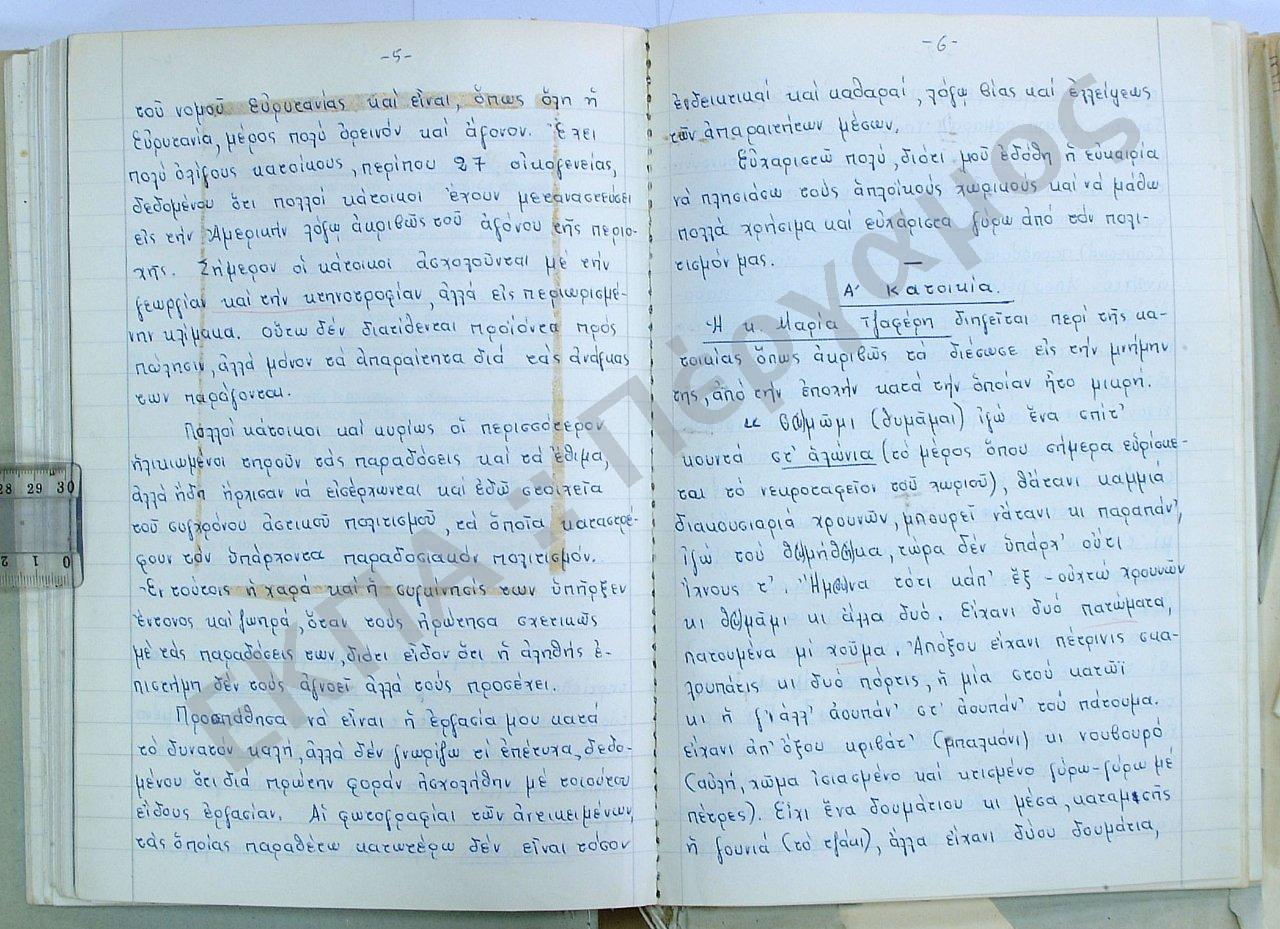 -5-
τοῦ νομοῦ Εὐρυτανίας καί εἶναι, ὅπως ὅλη ἡ
Εὐρυτανία, μέρος πολύ ὀρεινόν καί ἄγονον. Ἔχει
πολύ ὀλίγους κατοίκους, περίπου 27 οἰκογενείας,
δεδομένου ὅτι πολλοί κάτοικοι ἔχουν μεταναστεύσει
εἰς τήν Ἀμερικήν λόγῳ ἀκριβῶς τοῦ ἀγόνου τῆς περιο-
χῆς. Σήμερον οἱ κάτοικοι ἀσχολοῦνται μέ τήν
γεωργίαν καί τήν κτηνοτροφίαν, ἀλλά εἰς περιωρισμέ-
νην κλίμακα. οὕτω δέν διατίθενται προϊόντα πρός
πώλησιν, ἀλλά μόνον τά ἀπαραίτητα διά τάς ἀνάγκας
των παράγονται.
Πολλοί κάτοικοι καί κυρίως οἱ περισσότερον
ἡλικιωμένοι τηροῦν τάς παραδόσεις καί τά ἔθιμα,
ἀλλά ἤδη ἤρχισαν νά εἰσέρχωνται καί ἐδῶ στοιχεῖα
τοῦ συγχρόνου ἀστικοῦ πολιτισμοῦ, τά ὁποῖα καταστρέ-
φουν τόν ὑπάρχοντα παραδοσιακόν πολιτισμόν.
Ἐν τούτοις ἡ χαρά καί ἡ συγκίνησίς των ὑπῆρξεν
ἔντονος καί ζωηρά, ὅταν τούς ἠρώτησα σχετικῶς
μέ τάς παραδόσεις των, διότι εἶδον ὅτι ἡ ἀληθής ἐ-
πιστήμη δέν τούς ἀγνοεῖ ἀλλά τούς προσέχει.
Προσπάθησα νά εἶναι ἡ ἐργασία μου κατά
τό δυνατόν καλή, ἀλλά δέν γνωρίζω τί ἐπέτυχα, δεδο-
μένου ὅτι διά πρώτην φοράν ἠσχολήθην μέ τοιούτου
εἴδους ἐργασίαν. Αἱ φωτογραφίαι τῶν ἀντικειμένων,
τάς ὁποίας παραθέτω κατωτέρω δέν εἶναι τόσον
-6-
ἐνδεικτικαί καί καθαραί, λόγῳ βίας καί ἐλλείψεως
τῶν ἀπαραιτήτων μέσων.
Εὐχαριστῶ πολύ, διότι μοῦ ἐδόθη ἡ εὐκαιρία
νά πλησιάσω τούς ἁπλοϊκούς χωρικούς καί νά μάθω
πολλά χρήσιμα καί εὐχάριστα γύρω ἀπό τόν πολι-
τισμόν μας. —
Α' Κατοικία.
Ἡ κ. Μαρία Τζαφέρη διηγεῖται περί τῆς κα-
τοικίας ὅπως ἀκριβῶς τό διέσωσε εἰς τήν μνήμην
της, ἀπό τήν ἐποχήν κατά τήν ὁποίαν ἦτο μικρή.
" Θ(υ)μῶμι (θυμᾶμαι) ἰγώ ἕνα σπίτ'
κουντά στ' ἁλώνια (τό μέρος ὅπου σήμερα εὑρίσκε-
ται τό νεκροταφεῖον τοῦ χωριοῦ), θἆτανι καμμιά
διακουσιαριά χρουνῶν, μπουρεῖ νἆτανι κι παραπάν',
ἰγώ τού θ(υ)μήθ(η)κα, τώρα δέν ὑπάρχ' οὔτι
ἴχνους τ'. Ἤμ(ου)να τότι κάπ' ἕξ - οὐχτώ χρουνῶν
κι θ(υ)μᾶμι κι ἄλλα δυό. Εἴχανι δυό πατώματα,
πατουμένα μί χοῦμα. Ἀπόξου εἴχανι πέτρινις σκα-
λουπάτις κι δυό πόρτις, ἡ μία στού κατῶϊ
κι ἡ γ'ν'ἄλλ' ἀουπάν' στ' ἀουπάν' τού πάτουμα.
εἴχανι ἀπ' ὄξου κριβάτ' (μπαλκόνι) κι νουβουρό
(αὐλή, χῶμα ἰσιασμένο καί κτισμένο γύρω-γύρω μέ
πέτρες). Εἶχι ἕνα δουμάτιου κι μέσα, καταμ'σῆς
ἡ γουνιά (τό τζάκι), ἄλλα εἴχανι δύου δουμάτια,
28 29 30
2 1 0
ΕΚΠΑ :: Πέργαμος